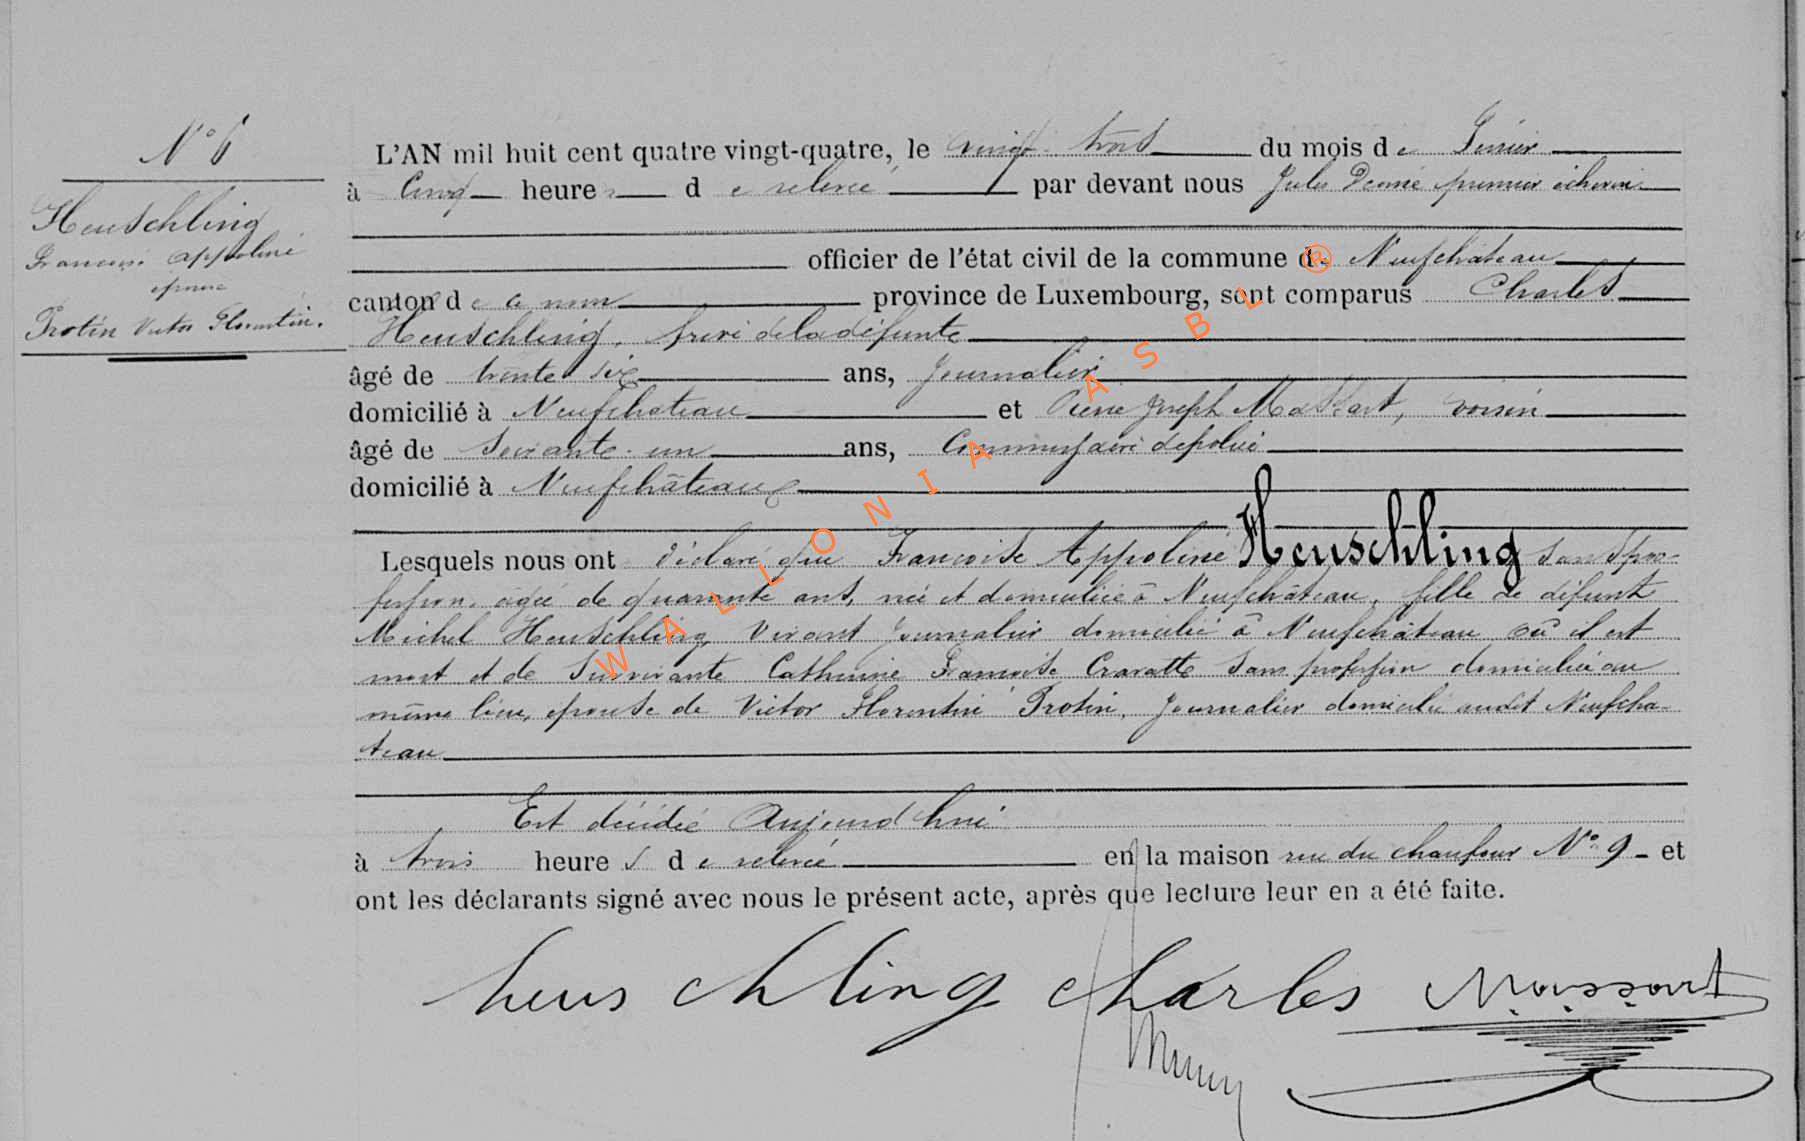 N° 6
Heuschling
Francoise Appoline
épouse
Protin Victor Florentin.
L'AN mil huit cent quatre vingt-quatre, le vingt trois du mois de Février
à Cinq heures de relevée par devant nous Jules premier échevin
officier de l'état civil de la commune de Neufchâteau
canton de ce nom province de Luxembourg, sont comparus Charles
Heuschling, frère de la défunte
âgé de trente six ans, Journalier
domicilié à Neufchateau et Pierre Joseph Massart, voisin
âgé de soixante-un ans, Commissaire de police
domicilié à Neufchâteau
Lesquels nous ont déclaré que Francoise Appoline Heuschling sans pro-
fession, agée de quarante ans, née et domiciliée à Neufchâteau, fille de défunt
Michel Heuschling, Vivant Journalier domicilié à Neufchâteau où il est
mort et de Survivante Catherine Francoise Cravatte sans profession domiciliée au
même lieu, épouse de Victor Florentin Protin, Journalier domicilié audit Neufchâ-
teau
Est décédée Aujourd'hui
à trois heures de relevée en la maison rue du chaufour N° 9 et
ont les déclarants signé avec nous le présent acte, après que lecture leur en a été faite.
heuschling charles Massart
WALLONIA ASBL ®